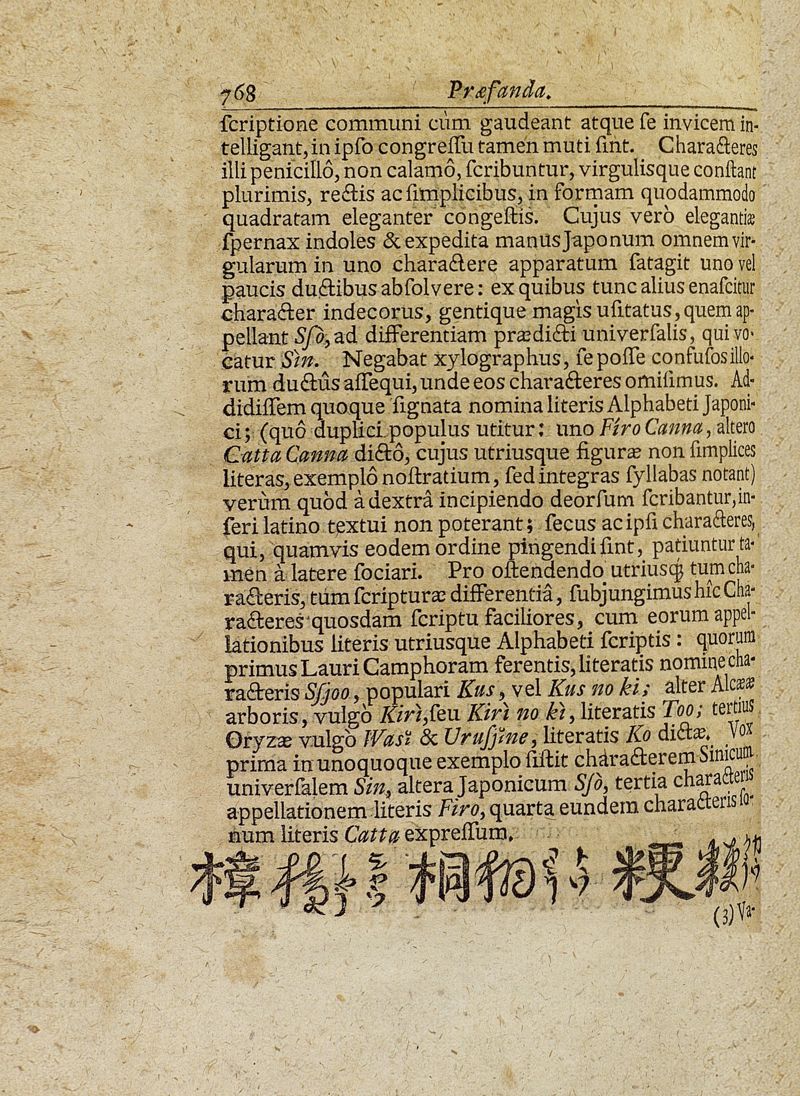 768 Præfanda.
ſcriptione communi cùm gaudeant atque ſe invicem in-
telligant, in ipſo congreſſu tamen muti ſint. Characteres
illi penicillô, non calamô, ſcribuntur, virgulisque conſtant
plurimis, rectis ac ſimplicibus, in formam quodammodo
quadratam eleganter congeſtis. Cujus verò elegantiæ
ſpernax indoles & expedita manus Japonum omnem vir-
gularum in uno charactere apparatum ſatagit uno vel
paucis ductibus abſolvere: ex quibus tunc alius enaſcitur
character indecorus, gentique magis uſitatus, quem ap-
pellant Sſò, ad differentiam prædicti univerſalis, qui vo-
catur Sin. Negabat xylographus, ſe poſſe confuſos illo-
rum ductûs aſſequi, unde eos characteres omiſimus. Ad-
didiſſem quoque ſignata nomina literis Alphabeti Japoni-
ci; (quô duplici populus utitur: uno Firo Canna, altero
Catta Canna dictô, cujus utriusque figuræ non ſimplices
literas, exemplô noſtratium, ſed integras ſyllabas notant)
verùm quòd à dextrâ incipiendo deorſum ſcribantur, in-
ſeri latino textui non poterant; ſecus ac ipſi characteres,
qui, quamvis eodem ordine pingendi ſint, patiuntur ta-
men à latere ſociari. Pro oſtendendo utriusq; tum cha-
racteris, tùm ſcripturæ differentiâ, ſubjungimus hîc Cha-
racteres quosdam ſcriptu faciliores, cum eorum appel-
lationibus literis utriusque Alphabeti ſcriptis: quorum
primus Lauri Camphoram ferentis, literatis nomine cha-
racteris Sſjoo, populari Kus, vel Kus no ki; alter Alcææ
arboris, vulgò Kirì, ſeu Kirì no kì, literatis Too; tertius
Oryzæ vulgò Wasì & Uruſjìne, literatis Ko dictæ. Vox
prima in unoquoque exemplo ſiſtit characterem Sinicum
univerſalem Sin, altera Japonicum Sſò, tertia characteris
appellationem literis Firo, quarta eundem characteris ſo-
num literis Catta expreſſum.
樟 桐 粳
(3) Va-